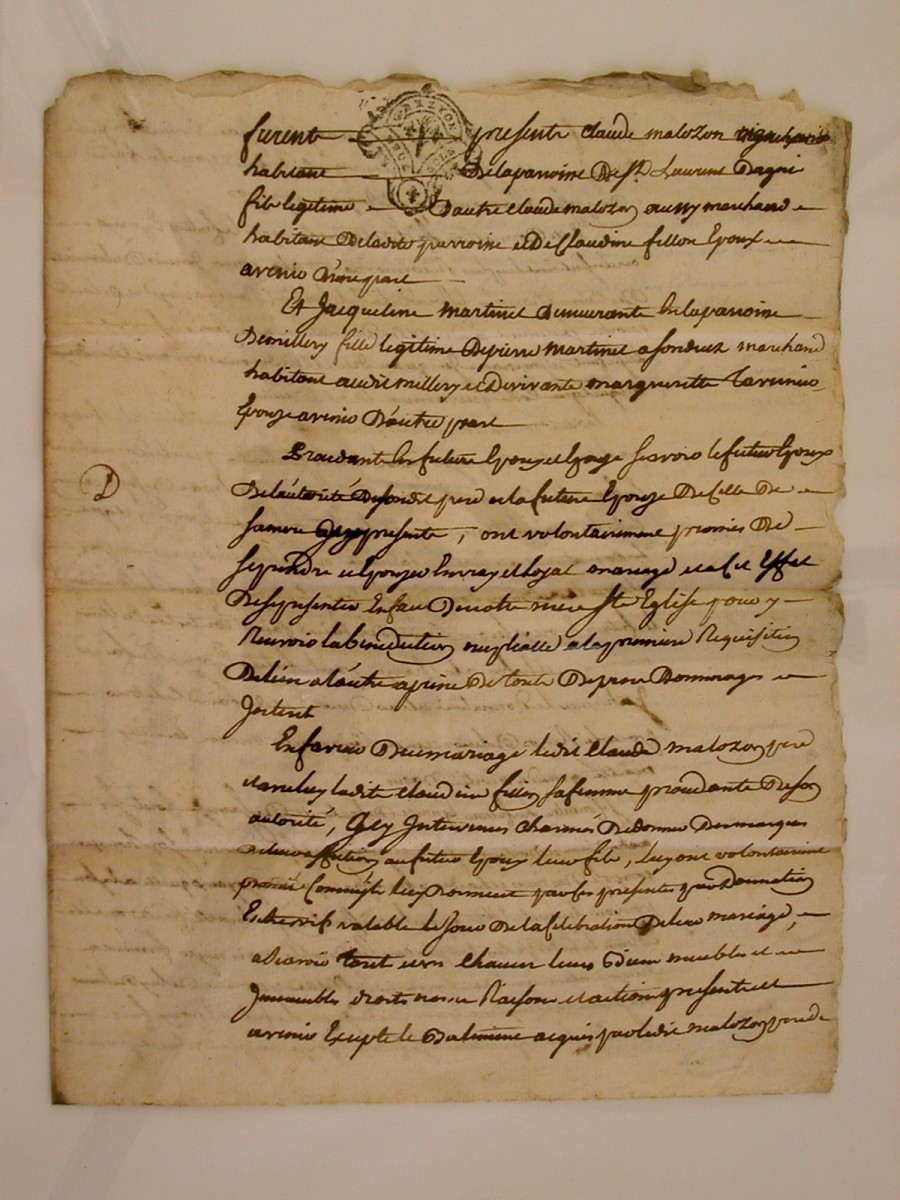 furent presents Claude malozon
habitant Delaparroisse De St Laurent Dagni
fils legitime D'autre Claude malozon aussy marchand
habitant Deladite parroisse et De Claudine fillon Epoux
avenir D'une part
Et Jacqueline martinet Demeurante En la parroisse
De millery fille legitime De pierre martinet marchand
habitant audit millery et De vivante margueritte
Epouze avenir D'autre part
Procedants les future Epoux et Epouze scavoir le futur Epoux
De l'autorité De son dit pere et la future Epouze De Celle De
sa mere presente, ont volontairement promis De
se prendre et Epouzer En vray et loyal mariage et a cet Effet
De se presenter En face De notre mere Ste Eglise pour y
Recevoir la benediction nuptialle a la premiere Requisition
De l'un a l'autre a peine De touts Depens Dommages
Interest
En faveur Dumariage ledit Claude malozon pere
et avec luy ladite Claudine fillon sa femme procedante De son
autorité, Icy Intervenus Charmés De donner Des marques
De leur affection au futur Epoux leur fils, luy ont volontairement
promis Comme ils luy Donnent par les presentes par Donnation
Entre vifs valable le jour De la Celebration De leur mariage,
a scavoir tout Chacun leurs Biens meubles et
Immeubles droits noms Raisons et actions presents et
avenir Excepté le Batiment acquis par ledit malozon pere De